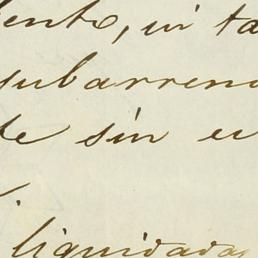 ente, ni ta
subarrend
te sin e
liquidadas